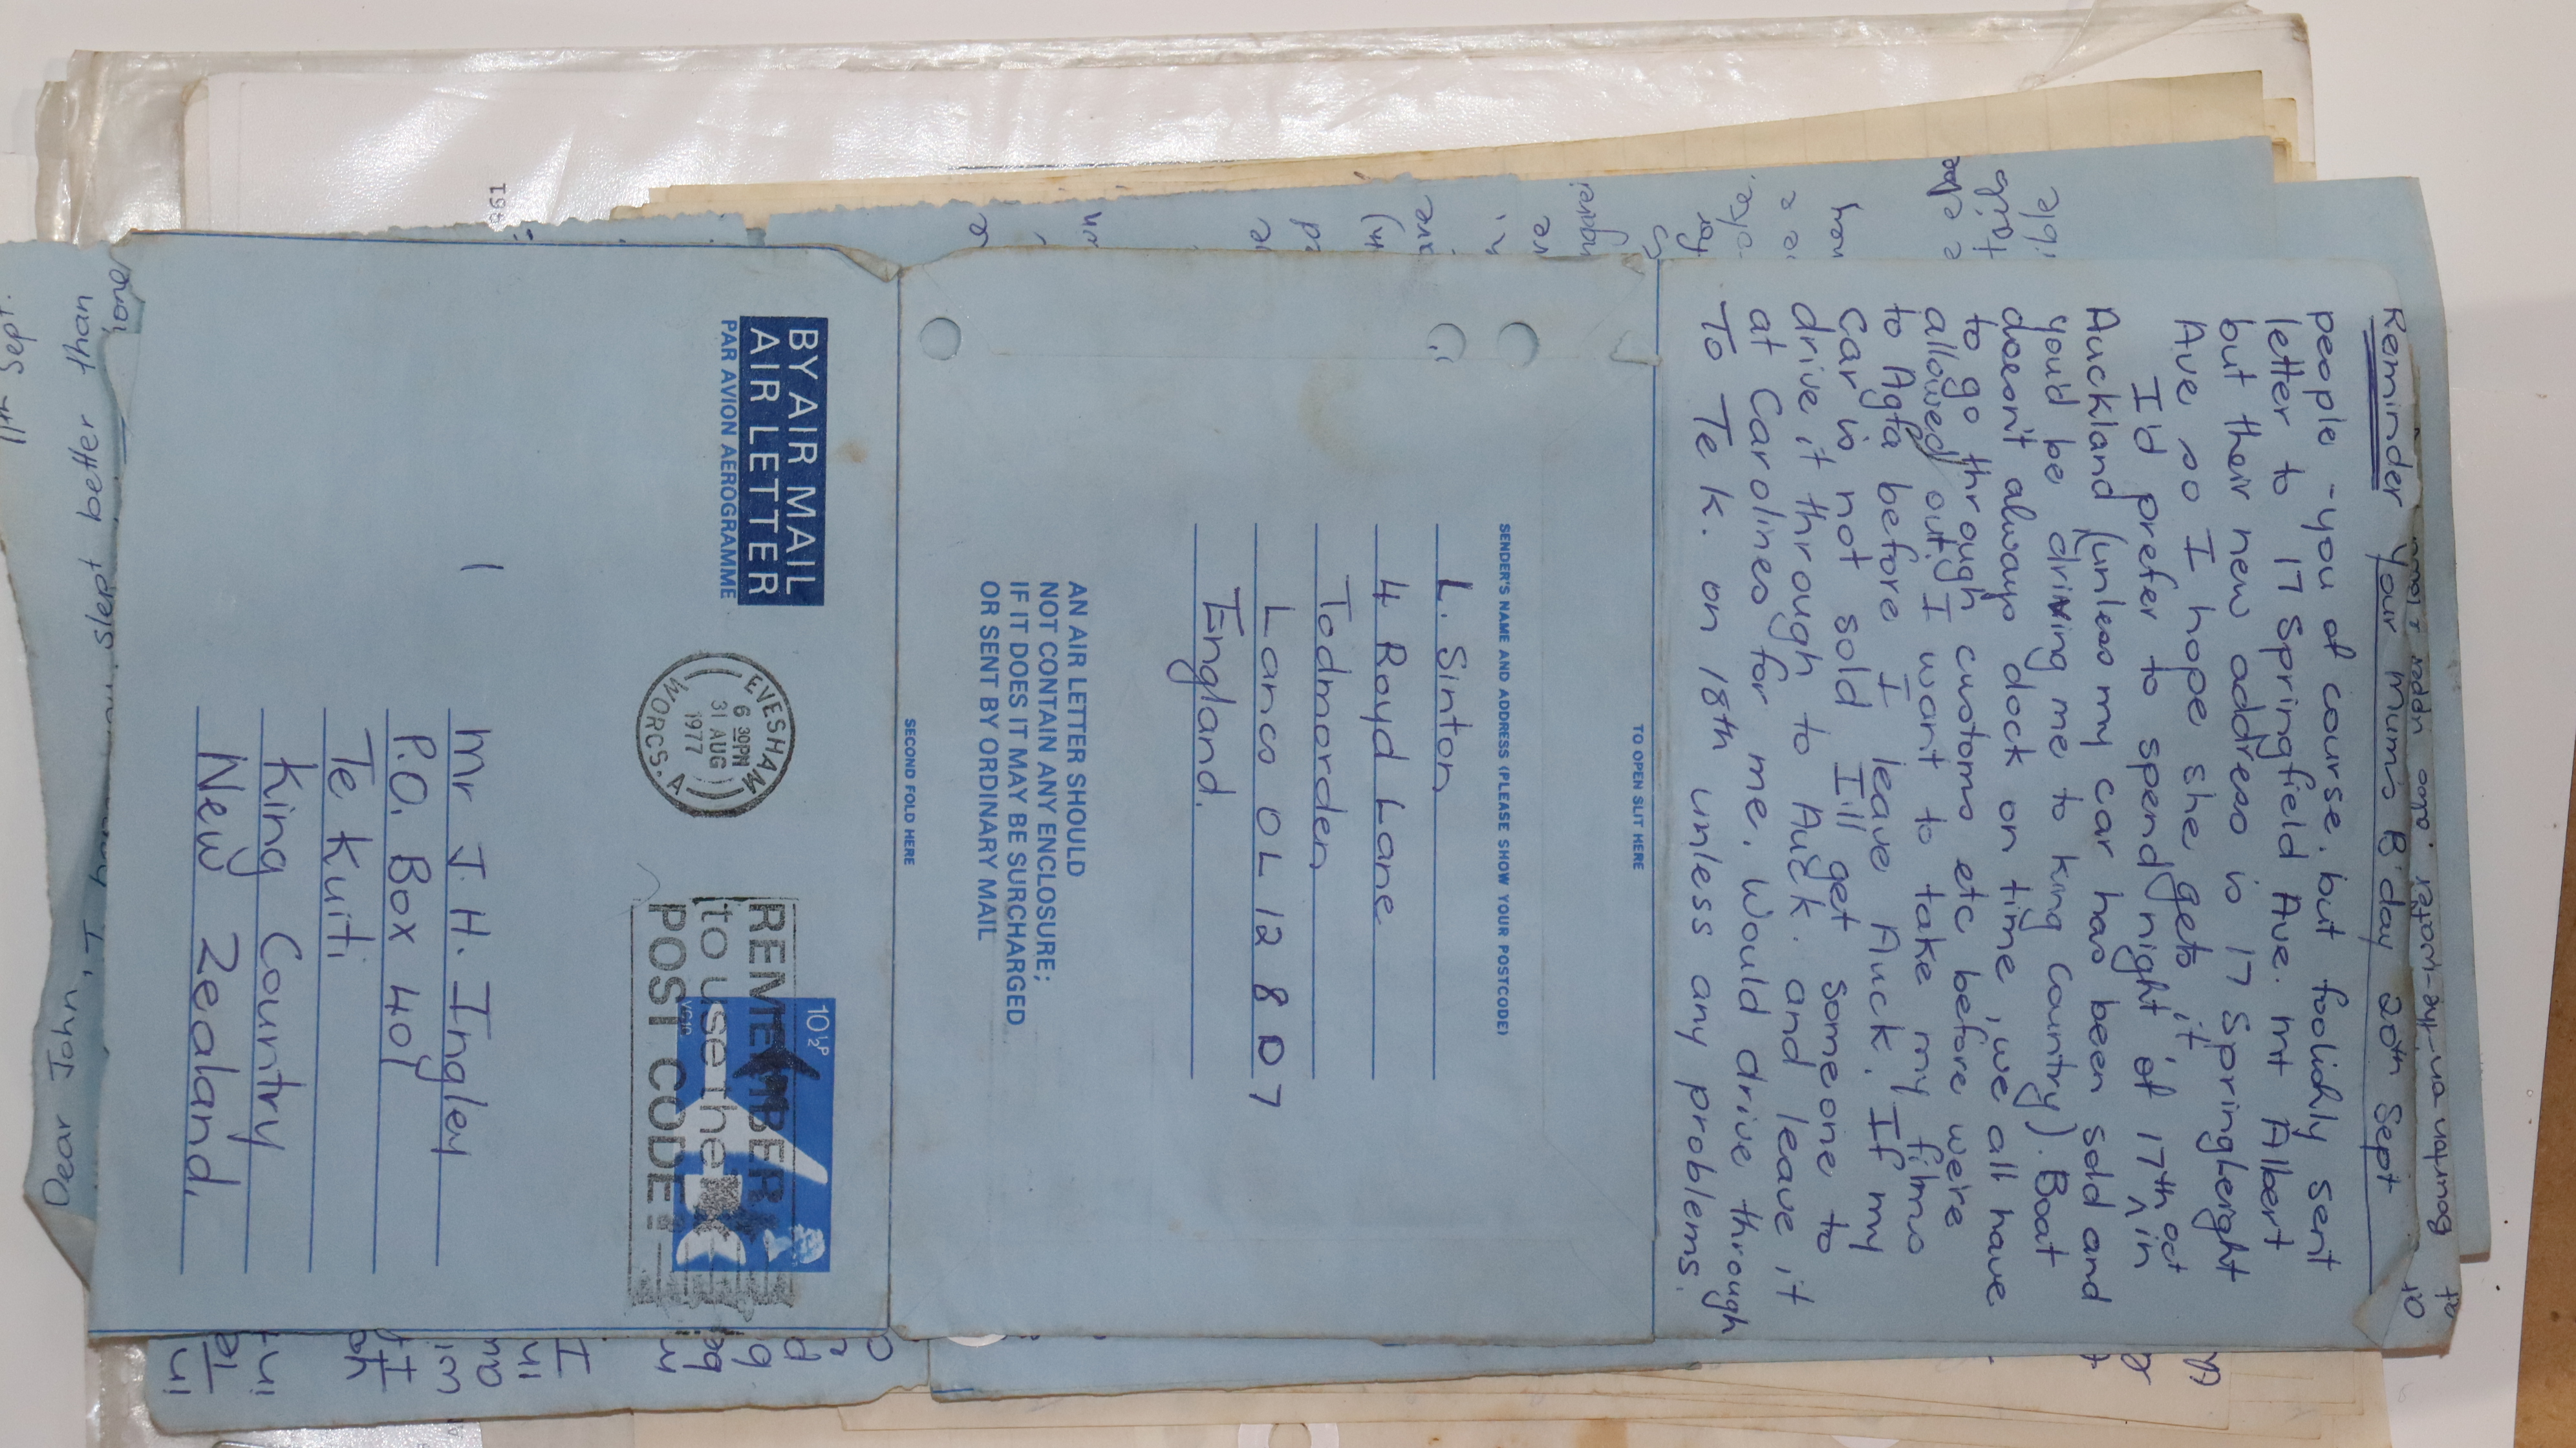 Reminder Your Mum's B'day 20th Sept
people - you of course, but foolishly sent
letter to 17 Springfield Ave. Mt Albert
but their new address is 17 Springleight
Ave so I hope she gets it.
I'd prefer to spend night of 17th oct in
Auckland (unless my car has been sold and
you'd be driving me to King Country). Boat
doesn't always dock on time, we all have
to go through customs etc before we're
allowed out. I want to take my films
to Agfa before I leave Auck. If my
car is not sold I'll get someone to
drive it through to Auck. and leave it
at Carolines for me. Would drive through
to Te K. on 18th unless any problems.
TO OPEN SLIT HERE
SENDER'S NAME AND ADDRESS (PLEASE SHOW YOUR POSTCODE)
L. Sinton
4 Royd Lane
Todmorden
Lancs OL12 8D7
England.
AN AIR LETTER SHOULD
NOT CONTAIN ANY ENCLOSURE;
IF IT DOES IT MAY BE SURCHARGED
OR SENT BY ORDINARY MAIL
SECOND FOLD HERE
BY AIR MAIL
AIR LETTER
PAR AVION AEROGRAMME
EVESHAM
6 30PM
31 AUG
1977
WORCS. A
10½P
REMEMBER
to use the
POST CODE
Mr J. H. Ingley
P.O. Box 401
Te Kuiti
King Country
New Zealand.
Dear John, I
slept better than
11th Sept.